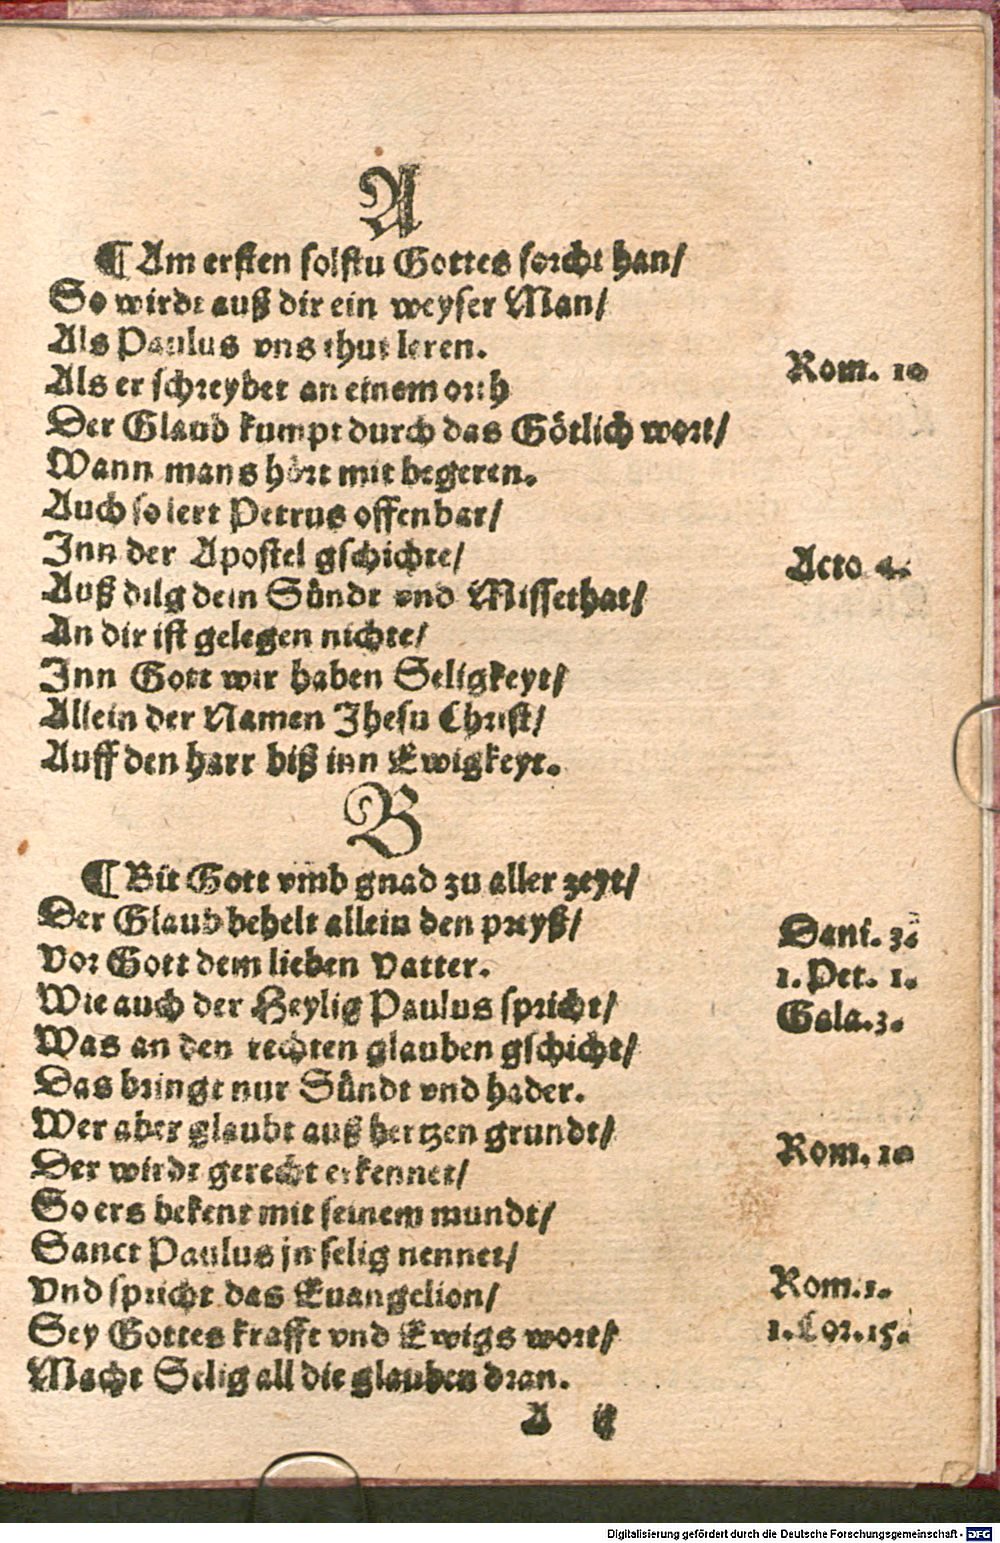 A
¶ Am ersten solstu Gottes forcht han/
So wirdt auß dir ein weyser Man/
Als Paulus vns thut leren.
Rom. 10
Als er schreybet an einem orth
Der Glaub kumpt durch das Götlich wort/
Wann mans hört mit begeren.
Auch so lert Petrus offenbar/
Inn der Apostel gschichte/
Acto 4.
Auß dilg dein Sündt vnd Missethat/
An dir ist gelegen nichte/
Inn Gott wir haben Seligkeyt/
Allein der Namen Jhesu Christ/
Auff den harr biß inn Ewigkeyt.
B
¶ Bit Gott vmb gnad zu aller zeyt/
Der Glaub behelt allein den preyß/
Dani. 3.
Vor Gott dem lieben Vatter.
1. Pet. 1.
Wie auch der Heylig Paulus spricht/
Gala. 3.
Was an den rechten glauben gschicht/
Das bringt nur Sündt vnd hader.
Wer aber glaubt auß hertzen grundt/
Rom. 10
Der wirdt gerecht erkennet/
So ers bekent mit seinem mundt/
Sanct Paulus jn selig nennet/
Vnd spricht das Euangelion/
Rom. 1.
Sey Gottes krafft vnd Ewigs wort/
1. Cor. 15.
Macht Selig all die glauben dran.
A ij
Digitalisierung gefördert durch die Deutsche Forschungsgemeinschaft - DFG